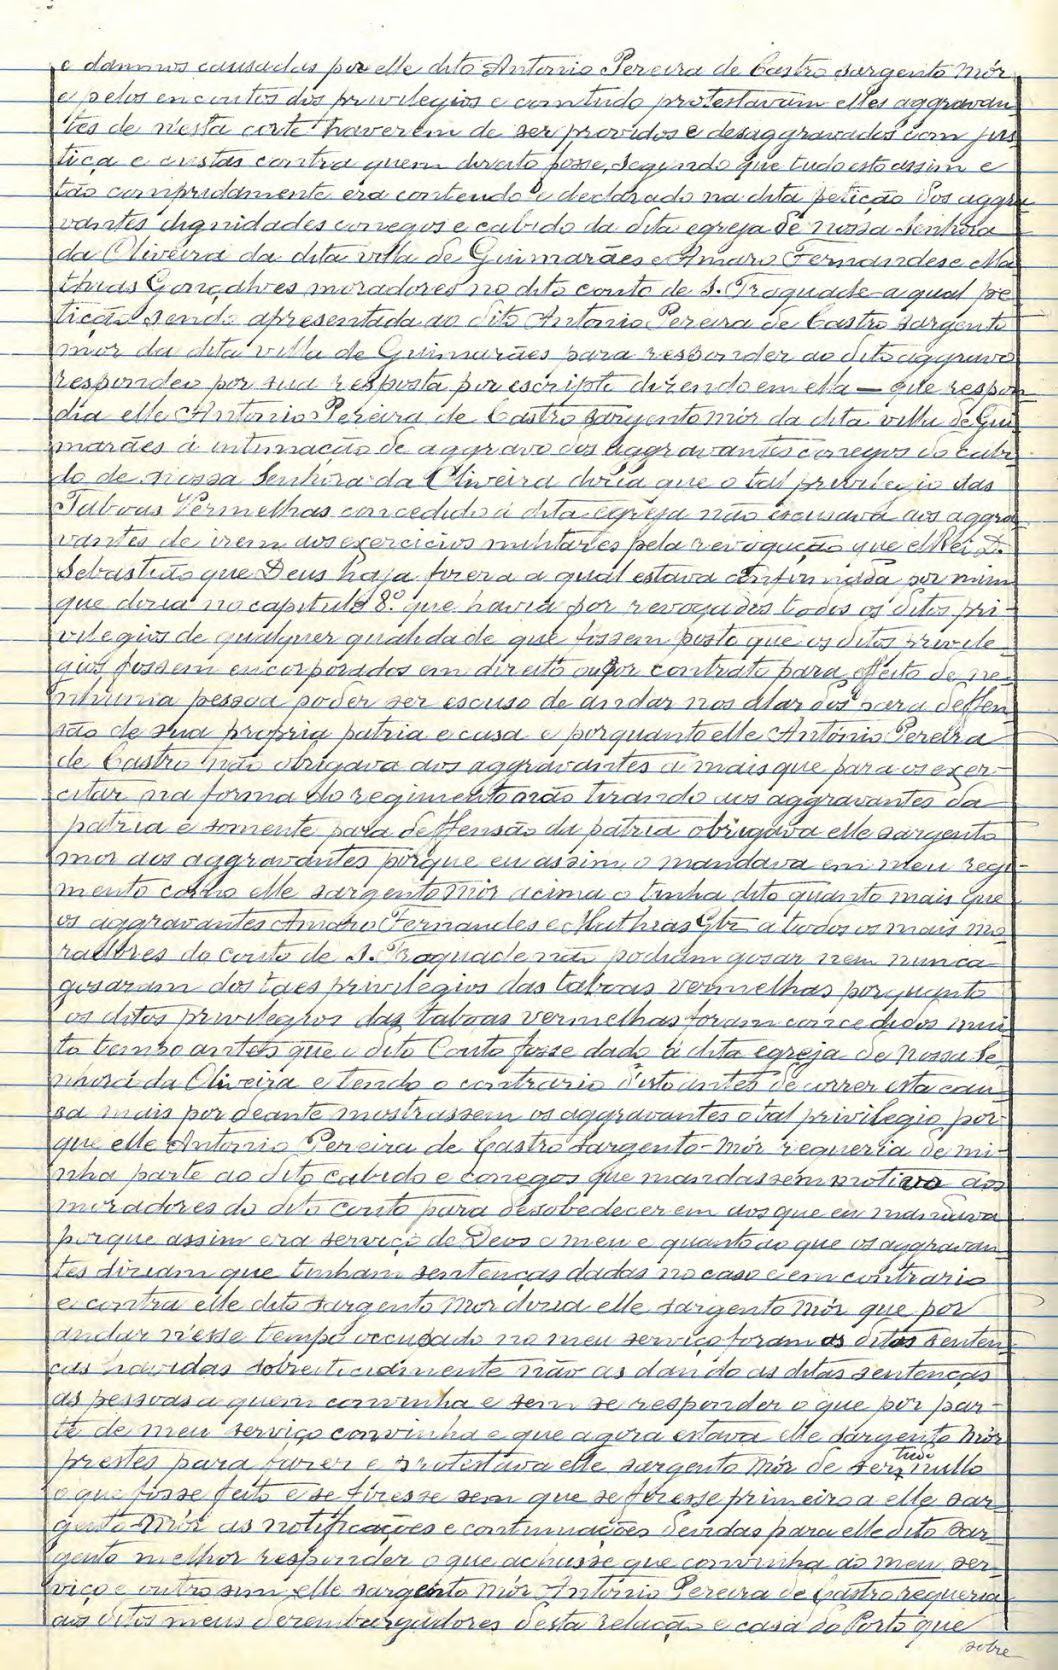 e damnos causadas por elle dito Antonio Pereira de Castro sargento mór
e pelos encoutos dos privilegios e comtudo protestavam elles aggravan
tes de n'esta corte haverem de ser providos e desaggravados com jus
tiça e custas contra quem direito fosse, segundo que tudo esto assim e
tão compridamente era contendo e declarado na dita petição dos aggra
vantes dignidades conegos e cabido da dita egreja de nossa Senhora
da Oliveira da dita villa de Guimarães e Amaro Fernandes e Ma
thias Gonçalves moradores no dito couto de S. Troquade a qual pe
tição sendo apresentada ao dito Antonio Pereira de Castro sargento
mor da dita villa de Guimarães para responder ao dito aggravo
respondeo por sua resposta por escripto dizendo em ella — que respon
dia elle Antonio Pereira de Castro sargento mór da dita villa de Gui
marães á intimação de aggravo dos aggravantes conegos do cabi
do de nossa Senhora da Oliveira dizia que o tal privilegio das
Taboas Vermelhas concedido á dita egreja não escusava aos aggra
vantes de irem aos exercicios militares pela revogação que el Rei D.
Sebastião que Deus haja fizera a qual estava confirmada por mim
que dizia no capitulo 8.º que havia por revogados todos os ditos pri-
vilegios de qualquer qualidade que fossem posto que os ditos privile-
gios fossem encorporados em direito ou por contrato para effeito de ne-
nhuma pessoa poder ser escuso de andar nos alardos para deffen
são de sua propria patria e casa e porquanto elle Antonio Pereira
de Castro não obrigava aos aggravantes a mais que para os exer-
citar na forma do regimento não tirando aos aggravantes da
patria e somente para deffensão da patria obrigava elle sargento
mor aos aggravantes porque eu assim o mandava em meu regi-
mento como elle sargento mór acima o tinha dito quanto mais que
os aggravantes Amaro Fernandes e Mathias Glz a todos os mais mo
radores do couto de S. Troquade não podiam gosar nem nunca
gosaram dos taes privilegios das taboas vermelhas porquanto
os ditos privilegios das taboas vermelhas foram concedidos mui
to tempo antes que o dito Couto fosse dado á dita egreja de Nossa Se
nhora da Oliveira e tendo o contrario d'isto antes de correr esta cau
sa mais por deante mostrassem os aggravantes o tal privilegio por-
que elle Antonio Pereira de Castro sargento-mór requeria de mi-
nha parte ao dito cabido e conegos que mandassem motivo aos
moradores do dito couto para desobedecerem aos que eu mandava
porque assim era serviço de Deus e meu e quanto ao que os aggravan
tes diziam que tinham sentenças dadas no caso e em contrario
e contra elle dito sargento mor dizia elle sargento mór que por
andar n'esse tempo occupado no meu serviço foram as ditas senten
ças havidas sobreticiamente não as dando as ditas sentenças
as pessoas a quem convinha e sem se responder o que por par-
te de meu serviço convinha e que agora estava elle sargento mór
prestes para fazer e protestava elle sargento mór de ser tudo nullo
o que fosse feito e se fizesse sem que se fizesse primeiro a elle sar-
gento-mór as notificações e continuações devidas para elle dito sar-
gento melhor responder o que achasse que convinha ao meu ser-
viço e outro sim elle sargento mór Antonio Pereira de Castro requeria
aos ditos meus dezembargadores desta relação e casa do Porto que
sobre